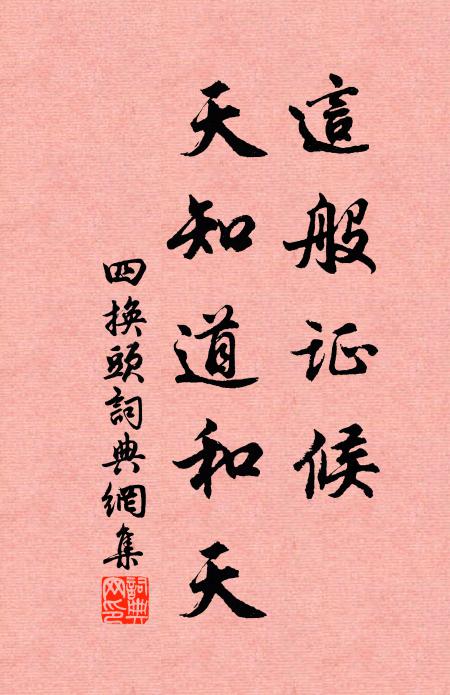 這般证候
天知道和天
四換頭詞典網集
詞典网印